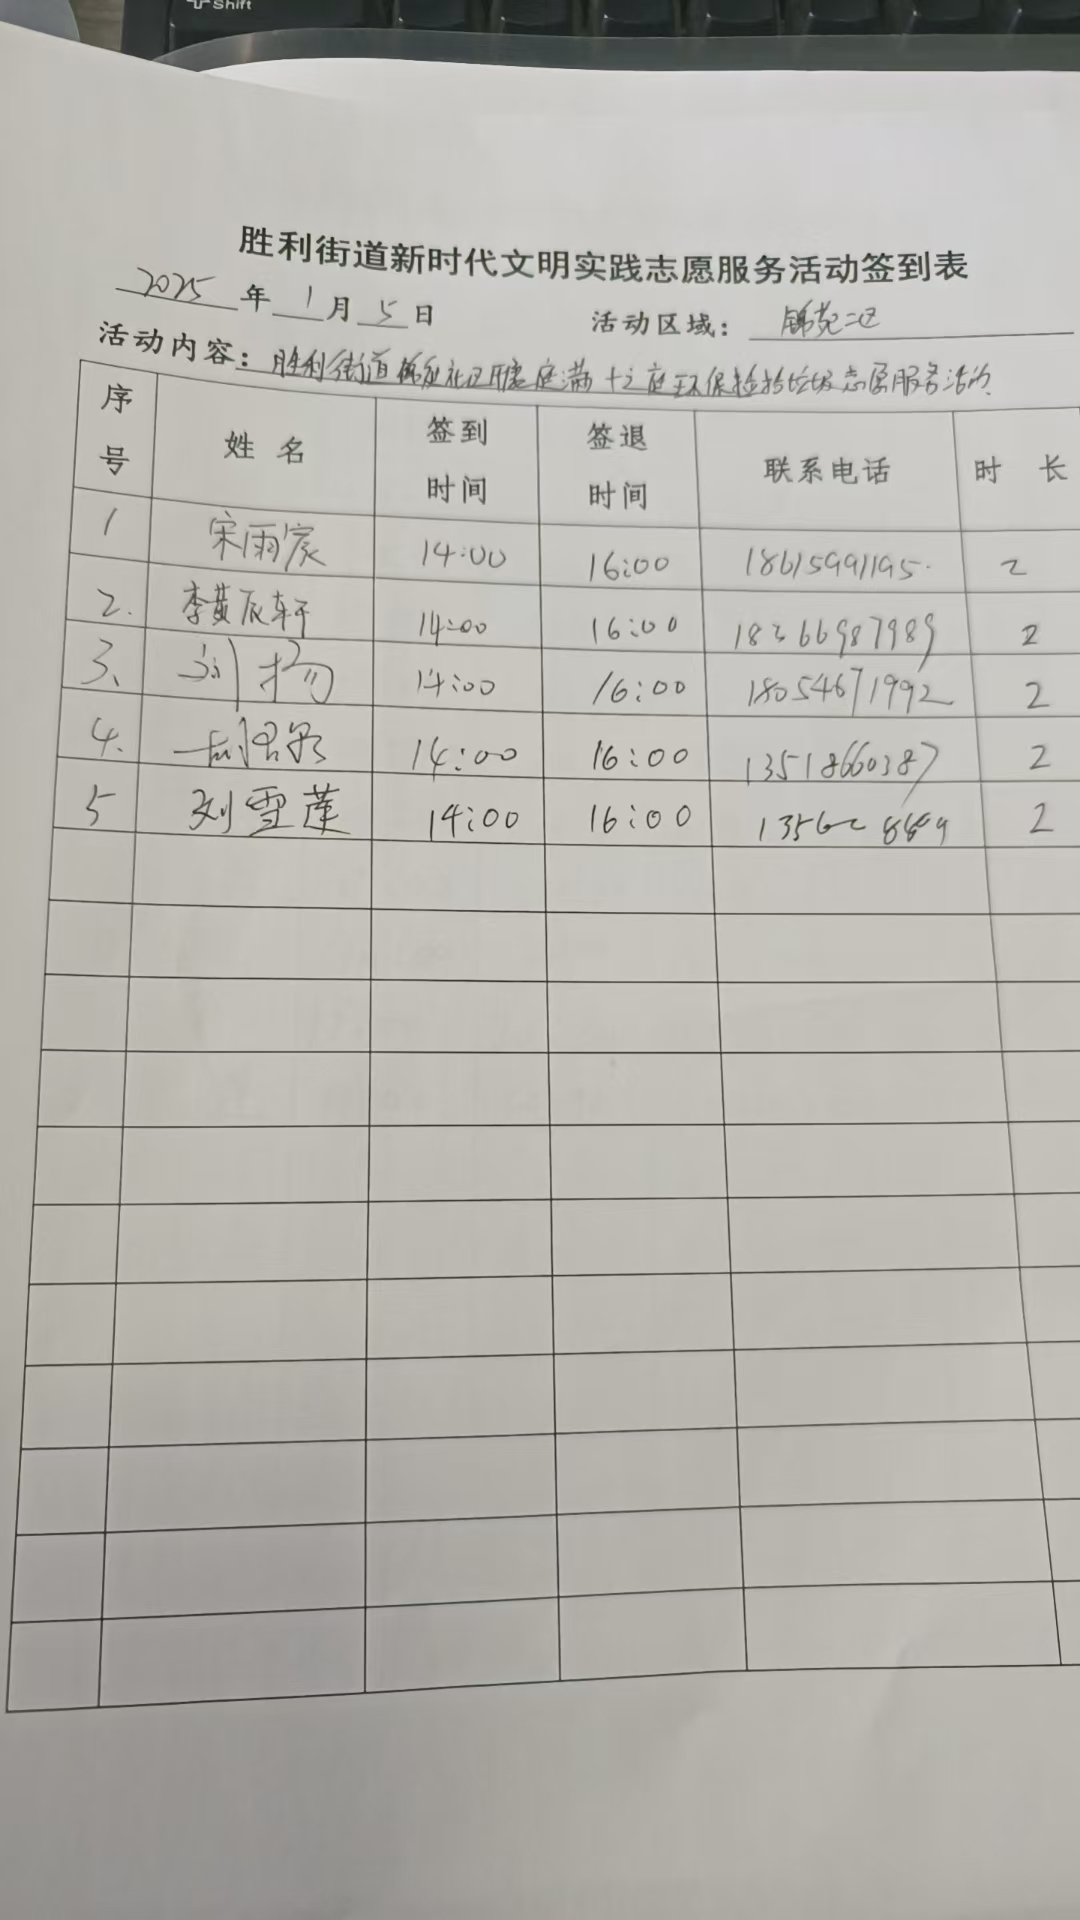 Shift
胜利街道新时代文明实践志愿服务活动签到表
2025年1月5日 活动区域：锦苑二区
活动内容：胜利街道锦苑社区 庭满 环保捡拾垃圾志愿服务活动
序号 姓名 签到时间 签退时间 联系电话 时长
1 宋雨宸 14:00 16:00 18615991195 2
2. 李黄辰轩 14:00 16:00 18366987989 2
3、 刘扬 14:00 16:00 18054671992 2
4. 14:00 16:00 13518660387 2
5 刘雪莲 14:00 16:00 2